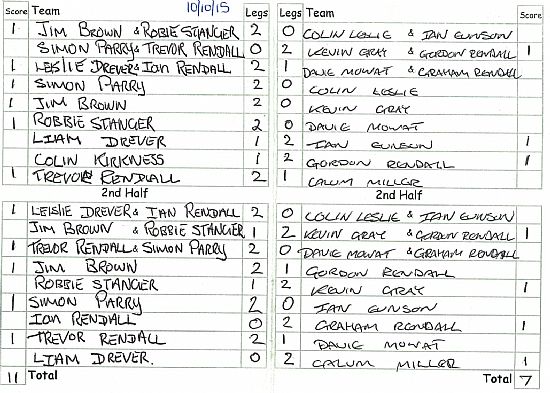 Score Team 10/10/15 Legs Legs Team Score
1 JIM BROWN & ROBIE STANGER 2 0 COLIN LESLIE & IAN EUNSON
SIMON PARRY & TREVOR RENDALL 0 2 KEVIN GRAY & GORDON RENDALL 1
1 LEISLIE DREVER & IAN RENDALL 2 1 DAVIE MOWAT & GRAHAM RENDALL
1 SIMON PARRY 2 0 COLIN LESLIE
1 JIM BROWN 2 0 KEVIN GRAY
1 ROBBIE STANGER 2 0 DAVIE MOWAT
LIAM DREVER 1 2 IAN EUNSON 1
COLIN KIRKNESS 1 2 GORDON RENDALL 1
1 TREVOR RENDLALL 2 1 CALUM MILLER
2nd Half 2nd Half
1 LEISLIE DREVER & IAN RENDALL 2 0 COLIN LESLIE & IAN EUNSON
JIM BROWN & ROBBIE STANGER 1 2 KEVIN GRAY & GORDON RENDALL 1
1 TREVOR RENDALL & SIMON PARRY 2 0 DAVIE MOWAT & GRAHAM RENDALL
1 JIM BROWN 2 1 GORDON RENDALL
ROBBIE STANGER 1 2 KEVIN GRAY 1
1 SIMON PARRY 2 0 IAN EUNSON
IAN RENDALL 0 2 GRAHAM RENDALL 1
1 TREVOR RENDALL 2 1 DAVIE MOWAT
LIAM DREVER. 0 2 CALUM MILLER 1
11 Total Total 7